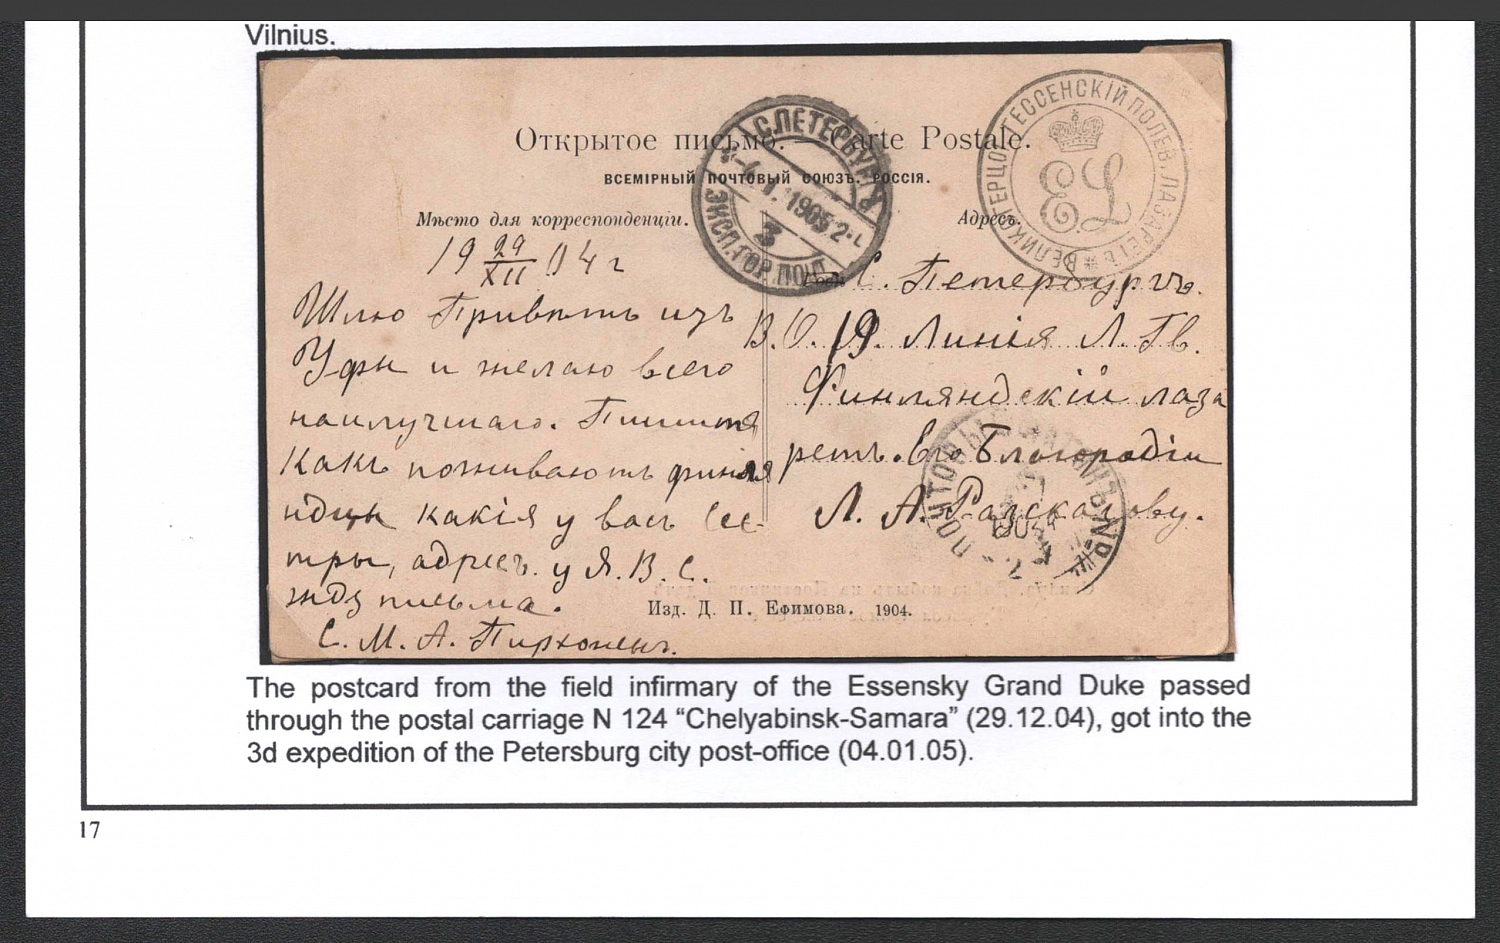 Vilnius.
Открытое письмо. — Carte Postale.
ВСЕМІРНЫЙ ПОЧТОВЫЙ СОЮЗЪ. РОССІЯ.
Мѣсто для корреспонденціи.
Адресъ.
С.ПЕТЕРБУРГЪ
4.1.1905
3
ЭКСП.ГОР.ПОЧТ.
ВЕЛИКОГЕРЦОГ ГЕССЕНСКІЙ ПОЛЕВ. ЛАЗАРЕТЪ
EL
19 29/XII 04 г
Шлю Привѣтъ изъ
Уфы и желаю всего
наилучшаго. Пишите
Какъ поживаютъ финля
ндцы какія у васъ Сес-
тры, адресъ. у Я. В. С.
жду письма.
С. М. А.
С. Петербургъ.
В. О. 19. Линія Л. Гв.
Финляндскій лаза
ретъ. Его Благородію
Л. А.
ПОЧТОВЫЙ ВАГОНЪ №
Изд. Д. П. Ефимова. 1904.
The postcard from the field infirmary of the Essensky Grand Duke passed
through the postal carriage N 124 “Chelyabinsk-Samara” (29.12.04), got into the
3d expedition of the Petersburg city post-office (04.01.05).
17